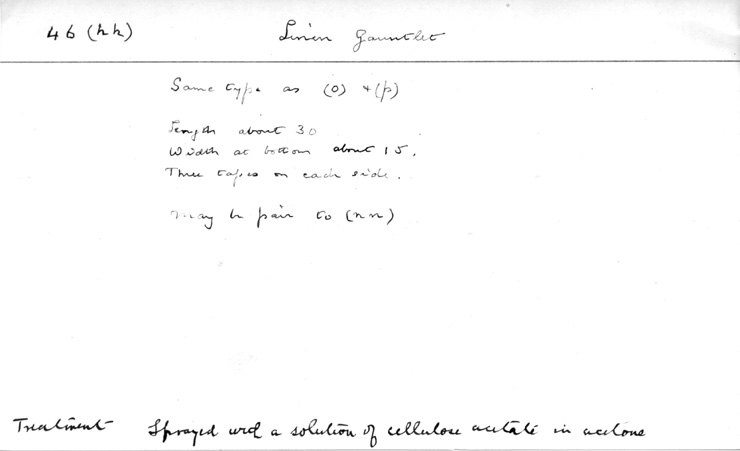 46 (hh) Linen Gauntlet
Same type as (o) + (p)
Length about 30
Width at bottom about 15.
Three tapes on each side.
May be pair to (nn)
Treatment Sprayed with a solution of cellulose acetate in acetone